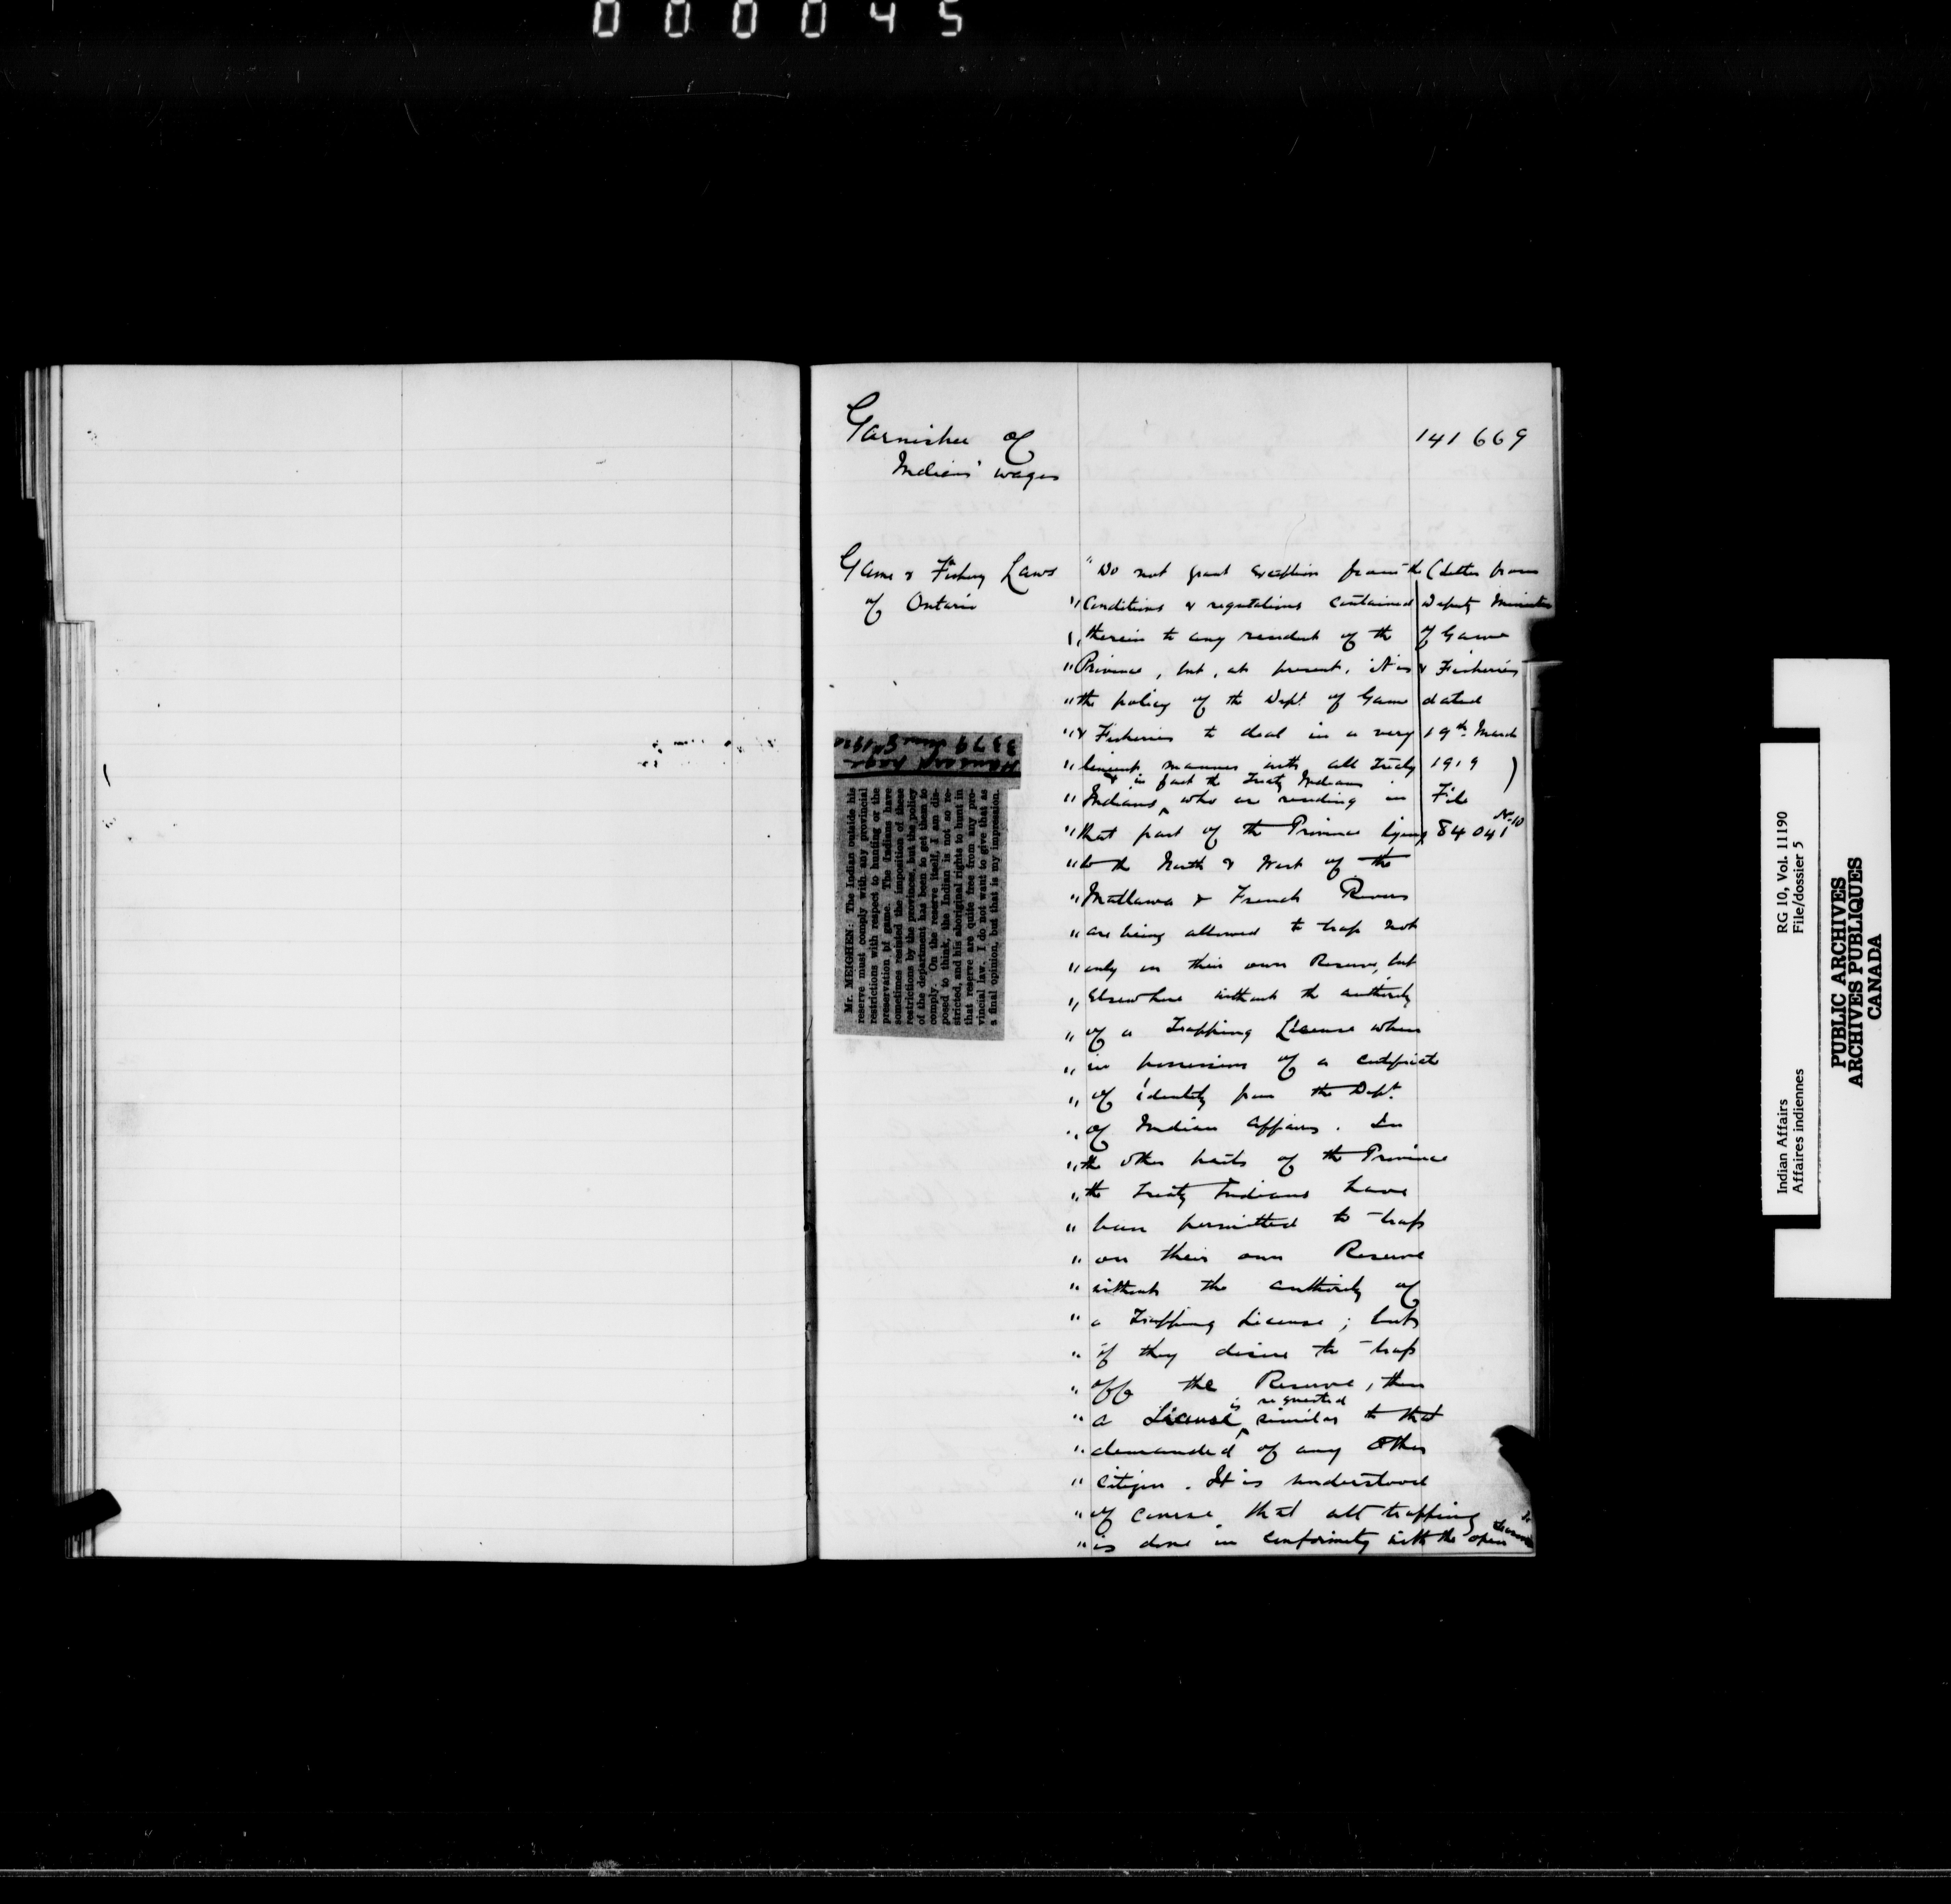 000045
Garnishee of
Indians' wages
141669
Game & Fishery Laws
of Ontario
"Do not grant exception from the
" Conditions & regulations contained
" therein to any resident of the
" Province, but, at present, it is
" the policy of the Dept. of Game
" & Fisheries to deal in a very
" lenient manner with all Treaty
& in fact the Treaty Indians
" Indians who are residing in
" that part of the Province lying
" to the North & West of the
" Mattawa & French Rivers
" are being allowed to trap not
" only on their own Reserve, but
" Elsewhere without the authority
" of a Trapping License when
" in possession of a certificate
" of identity from the Dept.
" of Indian Affairs. In
" the other parts of the Province
" the Treaty Indians have
" been permitted to trap
" on their own Reserve
" without the authority of
" a Trapping License; but
" if they desire to trap
" off the Reserve, then
is requested
" a License similar to that
" demanded of any other
" citizen. It is understood
" of course that all trapping
" is done in conformity with the open
(Letter from
Deputy Minister
of Game
& Fisheries
dated
19th March
1919)
File
84041
No. 10
Hansard page
3379 June 8th 1920
Mr. MEIGHEN: The Indian outside his
reserve must comply with any provincial
restrictions with respect to hunting or the
preservation of game. The Indians have
sometimes resisted the imposition of these
restrictions by the provinces, but the policy
of the department has been to get them to
comply. On the reserve itself, I am dis-
posed to think, the Indian is not so re-
stricted, and his aboriginal rights to hunt in
that reserve are quite free from any pro-
vincial law. I do not want to give that as
a final opinion, but that is my impression.
Indian Affairs
Affaires indiennes
RG 10, Vol. 11190
File/dossier 5
PUBLIC ARCHIVES
ARCHIVES PUBLIQUES
CANADA